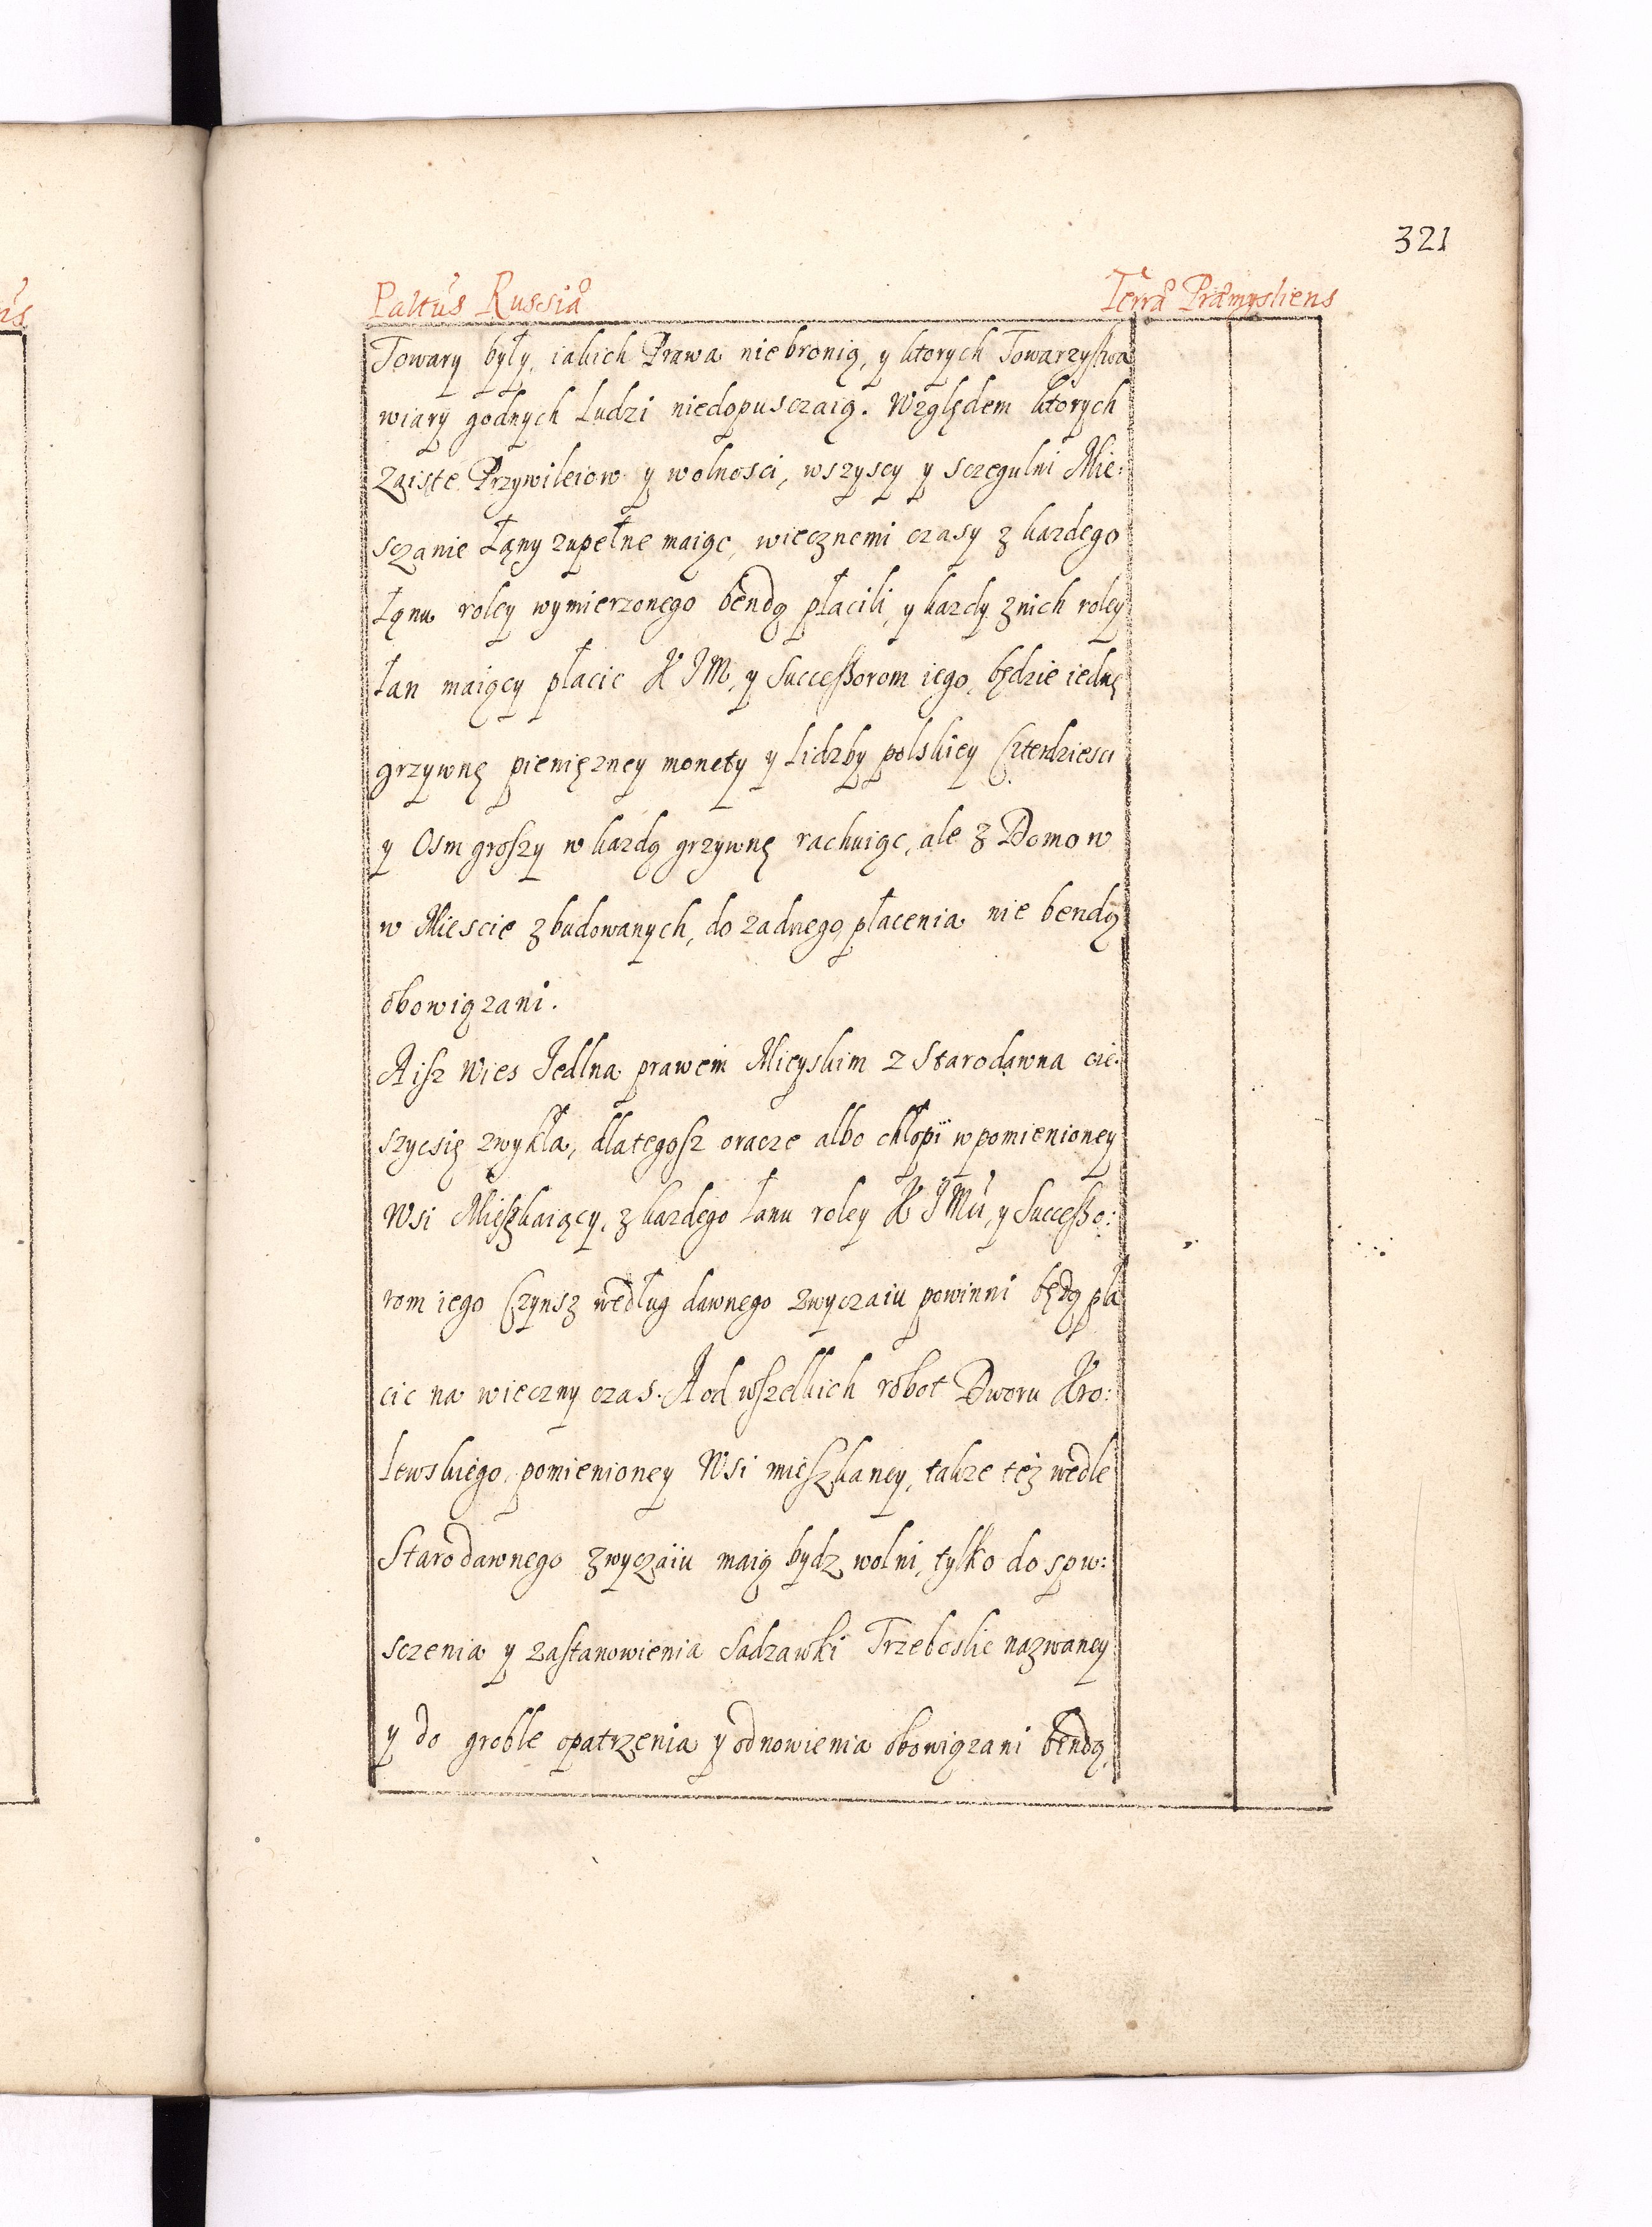 321
Paltus Russiæ
Terræ Præmysliens
Towary były, iakich Prawa niebronią, y ktorych Towarzystwa
wiary godnych Ludzi niedopusczaią. Względem ktorych
Zaiste Przywileiow y wolnosci, wszyscy y sczegulni Mie:
sczanie Łany zupełne maiąc, wiecznemi czasy z kazdego
Łąnu roley wymierzonego bendą płacili, y kazdy znich roley
Łan maiący płacic K JM, y Successorom iego, będzie iednę
grzywnę pieniężney monety y Lidzby polskiey Czterdziesci
y Osm groszy w kazdą grzywnę rachuiąc, ale z Domow
w Miescie zbudowanych, do zadnego płacenia nie bendą
obowiązani.
A isz Wies Jedlna prawem Mieyskim z Starodawna cie:
szycsię zwykła, dlategosz oracze albo chłopi wpomienioney
Wsi Mieszkaiący, z kazdego Łanu roley K JMu, y Successo:
rom iego Czynsz według dawnego zwyczaiu powinni będą pła
cic na wieczny czas. A od wszelkich robot Dworu Kro:
Lewskiego pomienioney Wsi mieszkancy, takze też wedle
Starodawnego zwyczaiu maią bydz wolni, tylko do spw:
sczenia y zastanowienia Sadzawki Trzeboslic nazwaney
y do groble opatrzenia y odnowienia obowiązani bendą,